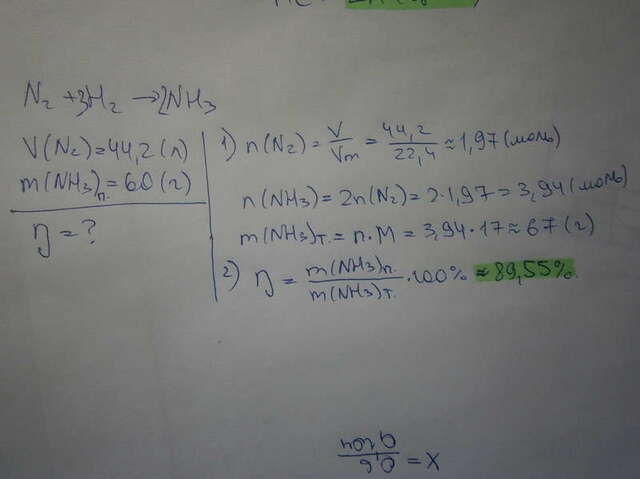 N₂ + 3H₂ → 2NH₃
V(N₂) = 44,2 (л)
m(NH₃)п. = 60 (г)
η = ?
1) n(N₂) = V/Vm = 44,2/22,4 ≈ 1,97 (моль)
n(NH₃) = 2n(N₂) = 2·1,97 = 3,94 (моль)
m(NH₃)т. = n·M = 3,94·17 ≈ 67 (г)
2) η = m(NH₃)п./m(NH₃)т. · 100% ≈ 89,55%.